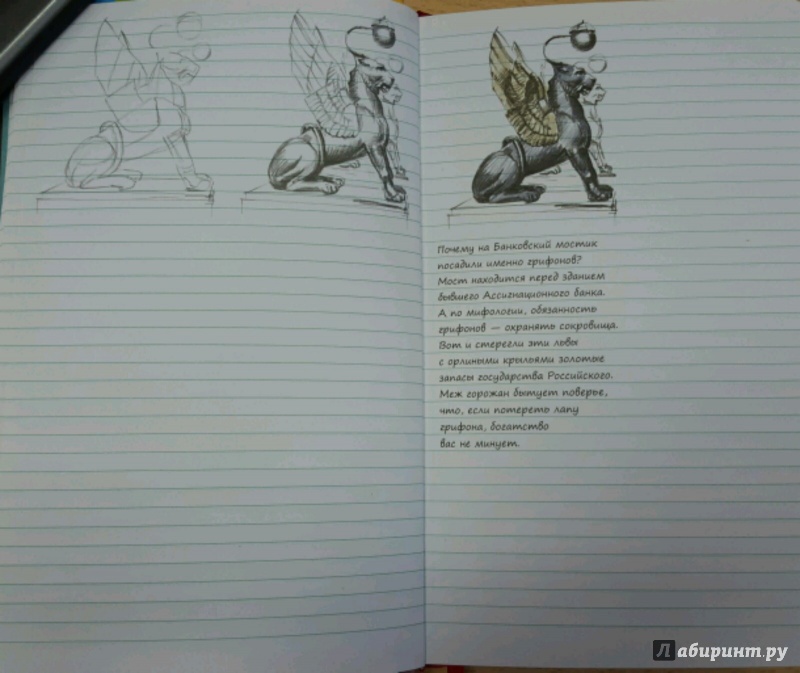 Почему на Банковский мостик
посадили именно грифонов?
Мост находится перед зданием
бывшего Ассигнационного банка.
А по мифологии, обязанность
грифонов — охранять сокровища.
Вот и стерегли эти львы
с орлиными крыльями золотые
запасы государства Российского.
Меж горожан бытует поверье,
что, если потереть лапу
грифона, богатство
вас не минует.
Лабиринт.ру